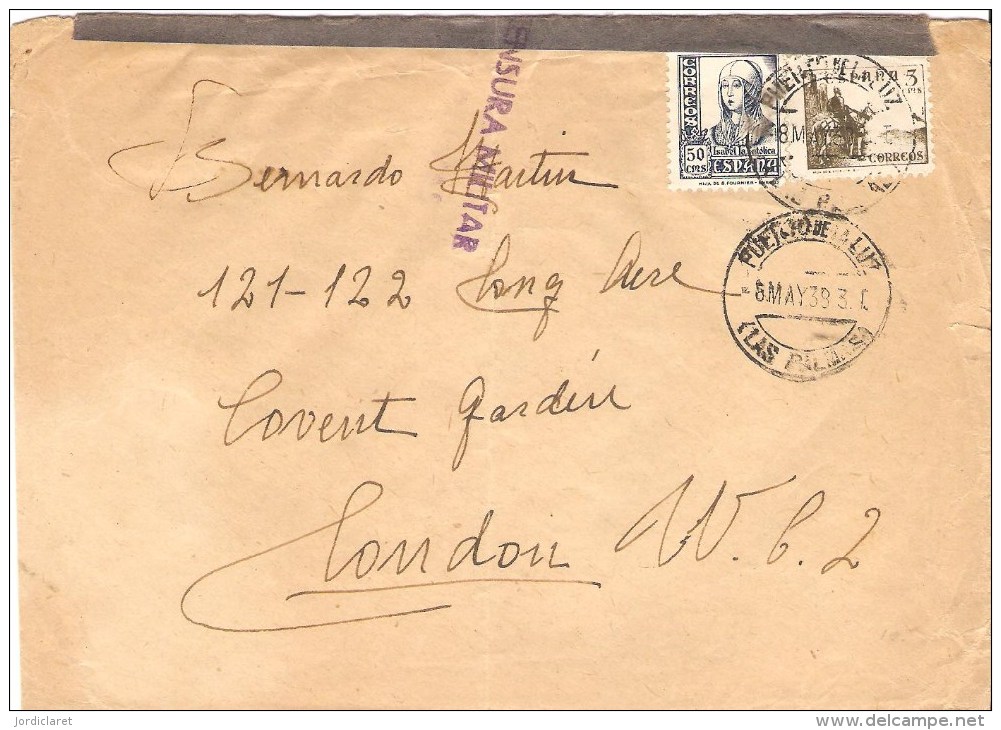 CENSURA MILITAR
CORREOS
50 CTS
Isabel la Católica
ESPAÑA
HIJA DE B. FOURNIER - BURGOS
5 CTS
CORREOS
PUERTO DE LA LUZ
8 MAY 38
Bernardo Martin
121-122 Long Acre
PUERTO DE LA LUZ
8 MAY 38 3.
(LAS PALMAS)
Covent Garden
London W.C.2
jordiclaret
www.delcampe.net